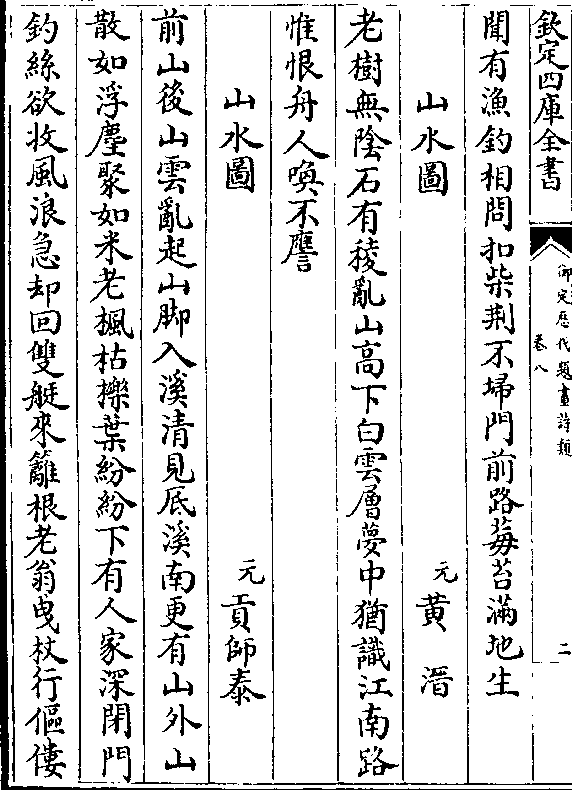 欽定四庫全書
御定歷代題畫詩類
卷八
二
聞有漁釣相問扣柴荆不埽門前路莓苔滿地生
山水圖 元黄溍
老樹無陰石有稜亂山高下白雲層夢中猶識江南路
惟恨舟人喚不譍
山水圖 元貢師泰
前山後山雲亂起山脚入溪清見底溪南更有山外山
散如浮塵聚如米老楓枯擽葉紛紛下有人家深閉門
釣絲欲收風浪急却回雙艇來籬根老翁曵杖行傴僂